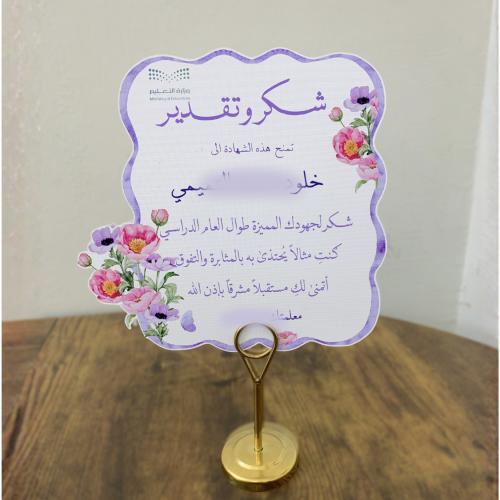 وزارة التعليم
Ministry of Education
شكر وتقدير
تمنح هذه الشهادة الى
شكر لجهودك المميزة طوال العام الدراسي
كنت مثالاً يُحتذى به بالمثابرة والتفوق
أتمنى لكِ مستقبلاً مشرقاً بإذن الله